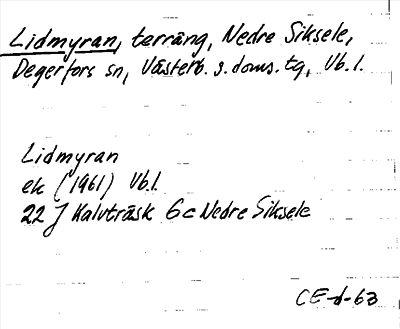 Lidmyran, terräng, Nedre Siksele,
Degerfors sn, Västerb. s. doms. tg, Vb. l.
Lidmyran
ek (1961) Vb.l.
22 J Kalvträsk 6c Nedre Siksele
CE-d-63